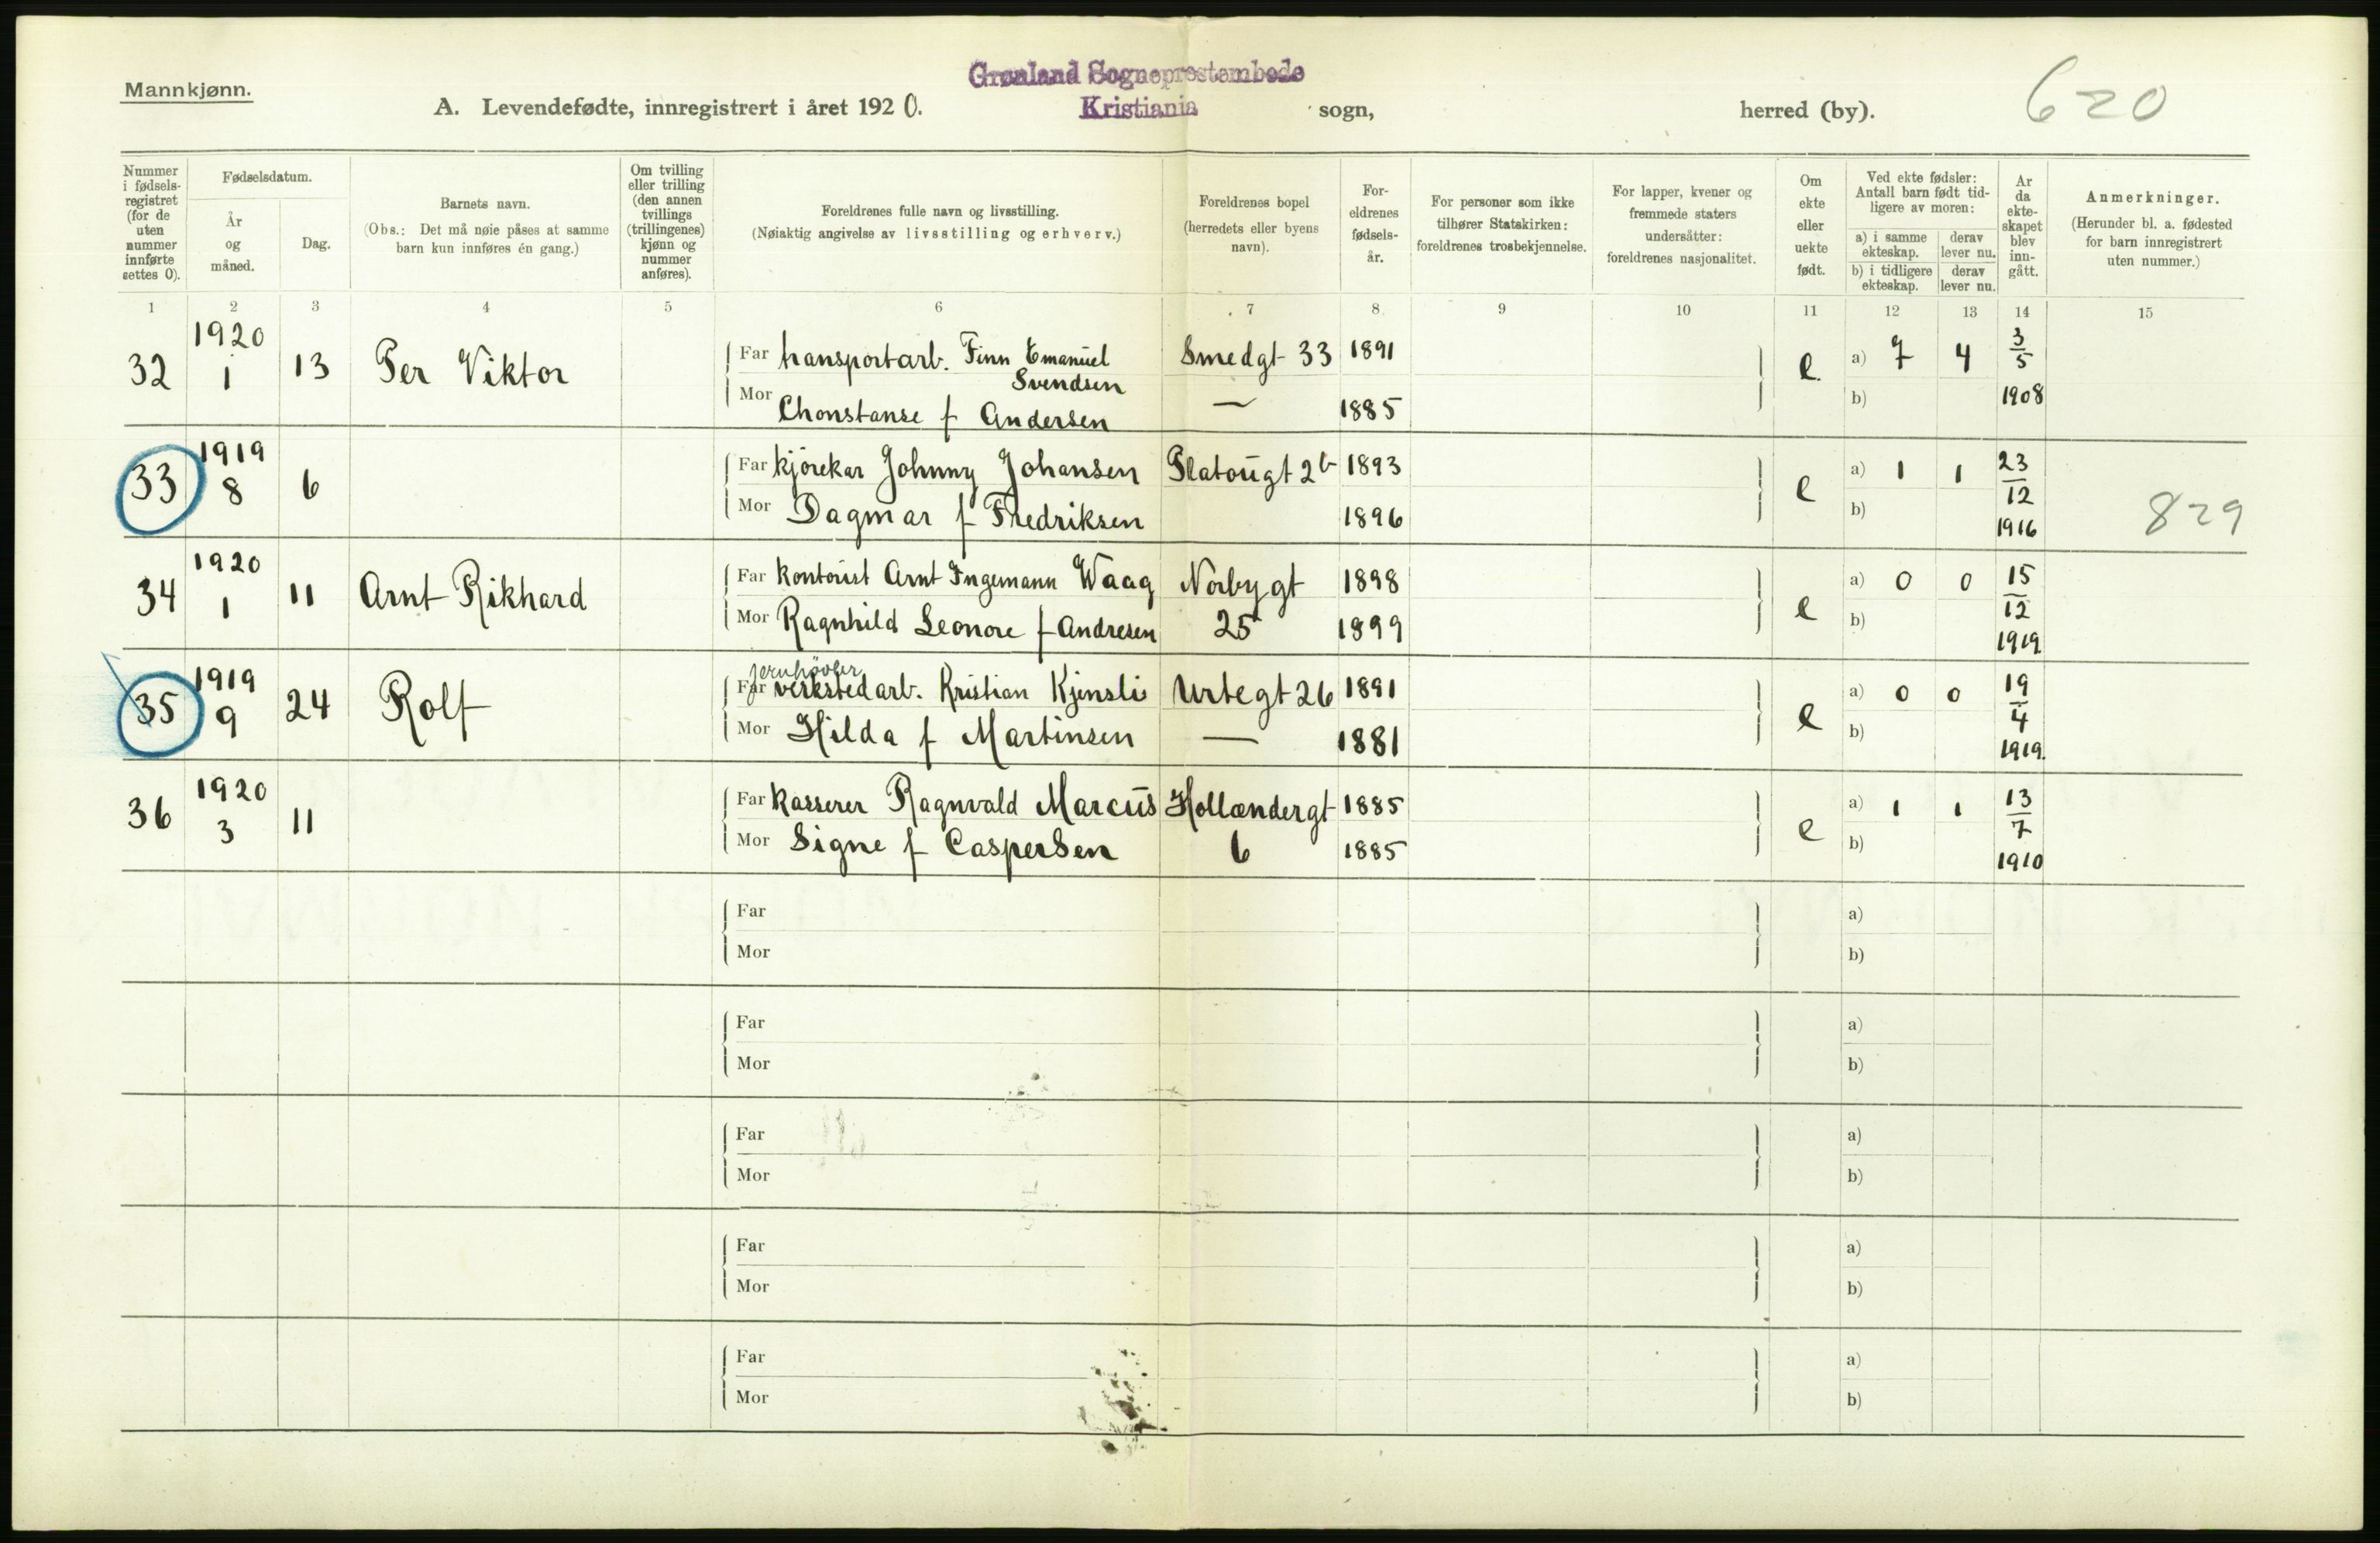 Mannkjønn.
Grønland Sogneprestembede
Kristiania
A. Levendefødte, innregistrert i året 1920.
sogn,
herred (by).
620
Nummer i fødsels-registret (for de uten nummer innførte settes 0).
Fødselsdatum.
År og måned.
Dag.
Barnets navn.
(Obs.: Det må nøie påses at samme barn kun innføres én gang.)
Om tvilling eller trilling (den annen tvillings (trillingenes) kjønn og nummer anføres).
Foreldrenes fulle navn og livsstilling.
(Nøiaktig angivelse av livsstilling og erhverv.)
Foreldrenes bopel
(herredets eller byens navn).
For-eldrenes fødsels-år.
For personer som ikke tilhører Statskirken: foreldrenes trosbekjennelse.
For lapper, kvener og fremmede staters undersåtter: foreldrenes nasjonalitet.
Om ekte eller uekte født.
Ved ekte fødsler: Antall barn født tid-ligere av moren:
a) i samme ekteskap.
derav lever nu.
b) i tidligere ekteskap.
derav lever nu.
År da ekte-skapet blev inn-gått.
Anmerkninger.
(Herunder bl. a. fødested for barn innregistrert uten nummer.)
1 2 3 4 5 6 7 8. 9 10 11 12 13 14 15
32 1920 1 13 Per Viktor
Far transportarb. Finn Emanuel Svendsen Smedgt 33 1891
Mor Chonstanse f Andersen — 1885
e. a) 7 4 3/5 1908
b)
33 1919 8 6
Far kjørekar Johnny Johansen Platougt 2b 1893
Mor Dagmar f Fredriksen 1896
e a) 1 1 23/12 1916
b)
829
34 1920 1 11 Arnt Rikhard
Far kontorist Arnt Ingemann Waag Norbygt 1898
Mor Ragnhild Leonore f Andresen 25 1899
e a) 0 0 15/12 1919
b)
35 1919 9 24 Rolf
jernhøvler
Far verkstedarb. Kristian Kjensli Urtegt 26 1891
Mor Hilda f Martinsen — 1881
e a) 0 0 19/4 1919.
b)
36 1920 3 11
Far Kasserer Ragnvald Marcus Hollændergt 1885
Mor Signe f Caspersen 6 1885
e a) 1 1 13/7 1910
b)
Far a)
Mor b)
Far a)
Mor b)
Far a)
Mor b)
Far a)
Mor b)
Far a)
Mor b)